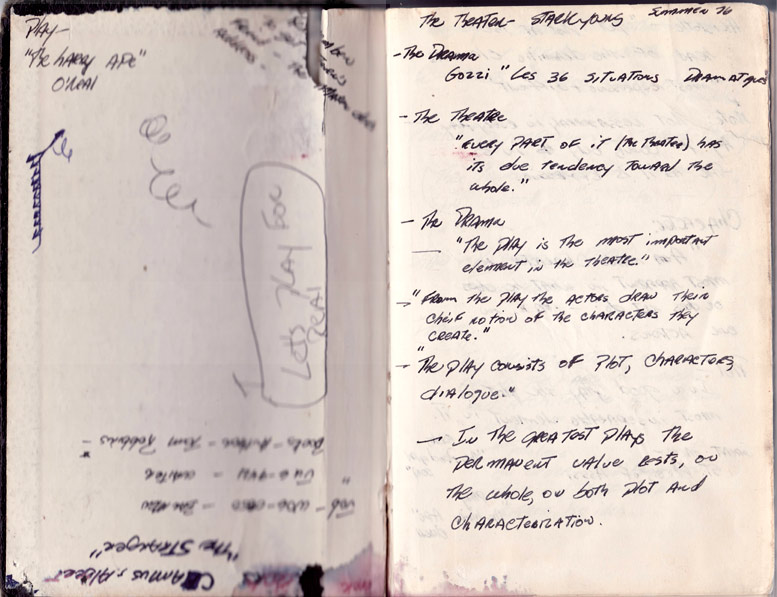 Play-
"The hairy Ape"
O'Neal
Let's play for
real
Camus, Albert
"The Stranger"
The Theater - Stark Young Summer 76
- The Drama
Gozzi "Les 36 Situations Dramatiques
- The Theatre
"Every part of it (the theatre) has
its due tendency toward the
whole."
- The Drama
"The play is the most important
element in the theatre."
"From the play the actors draw their
cheif notion of the characters they
create."
"The play consists of plot, characters,
dialogue."
- In the greatest plays the
permanent value rests, on
the whole, on both plot and
characterization.